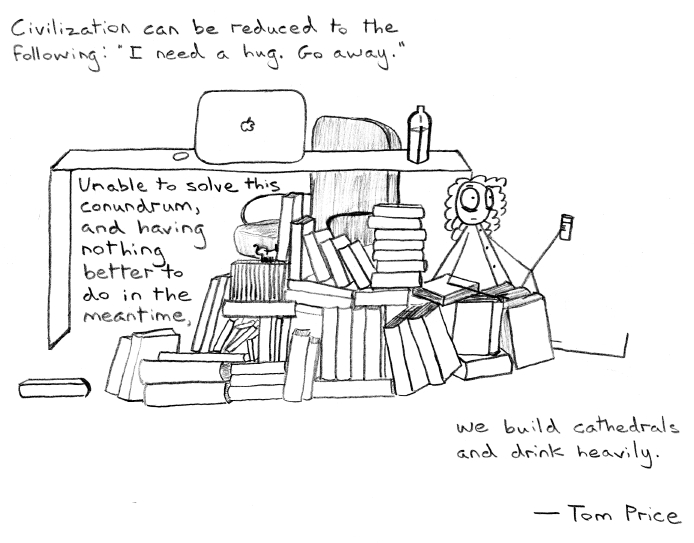 Civilization can be reduced to the
following: "I need a hug. Go away."
Unable to solve this
conundrum,
and having
nothing
better to
do in the
meantime,
we build cathedrals
and drink heavily.
— Tom Price